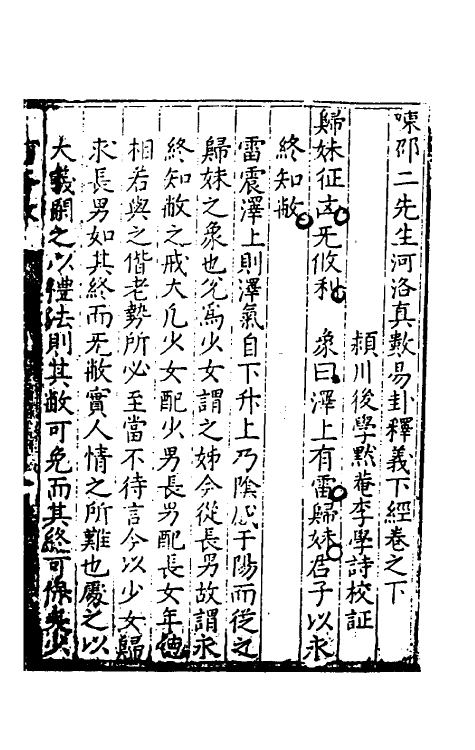 陳邵二先生河洛真數易卦釋義下經卷之下
頴川後學默菴李學詩校証
歸妹征凶无攸利　象曰澤上有雷歸妹君子以永
終知敝
雷震澤上則澤氣自下升上乃陰感于陽而從之
歸妹之象也兊為少女謂之姊今從長男故謂永
終知敝之戒大凡少女配少男長男配長女年德
相若與之偕老勢所必至當不待言今以少女歸
求長男如其終而无敝實人情之所難也處之以
大義閑之以禮法則其敝可免而其終可保矣